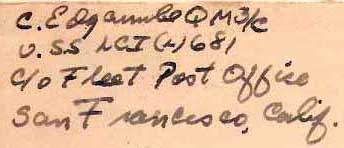 C. Edgcumbe QM3/c
U.SS LCI (L) 681
c/o Fleet Post Office
San Francisco, Calif.